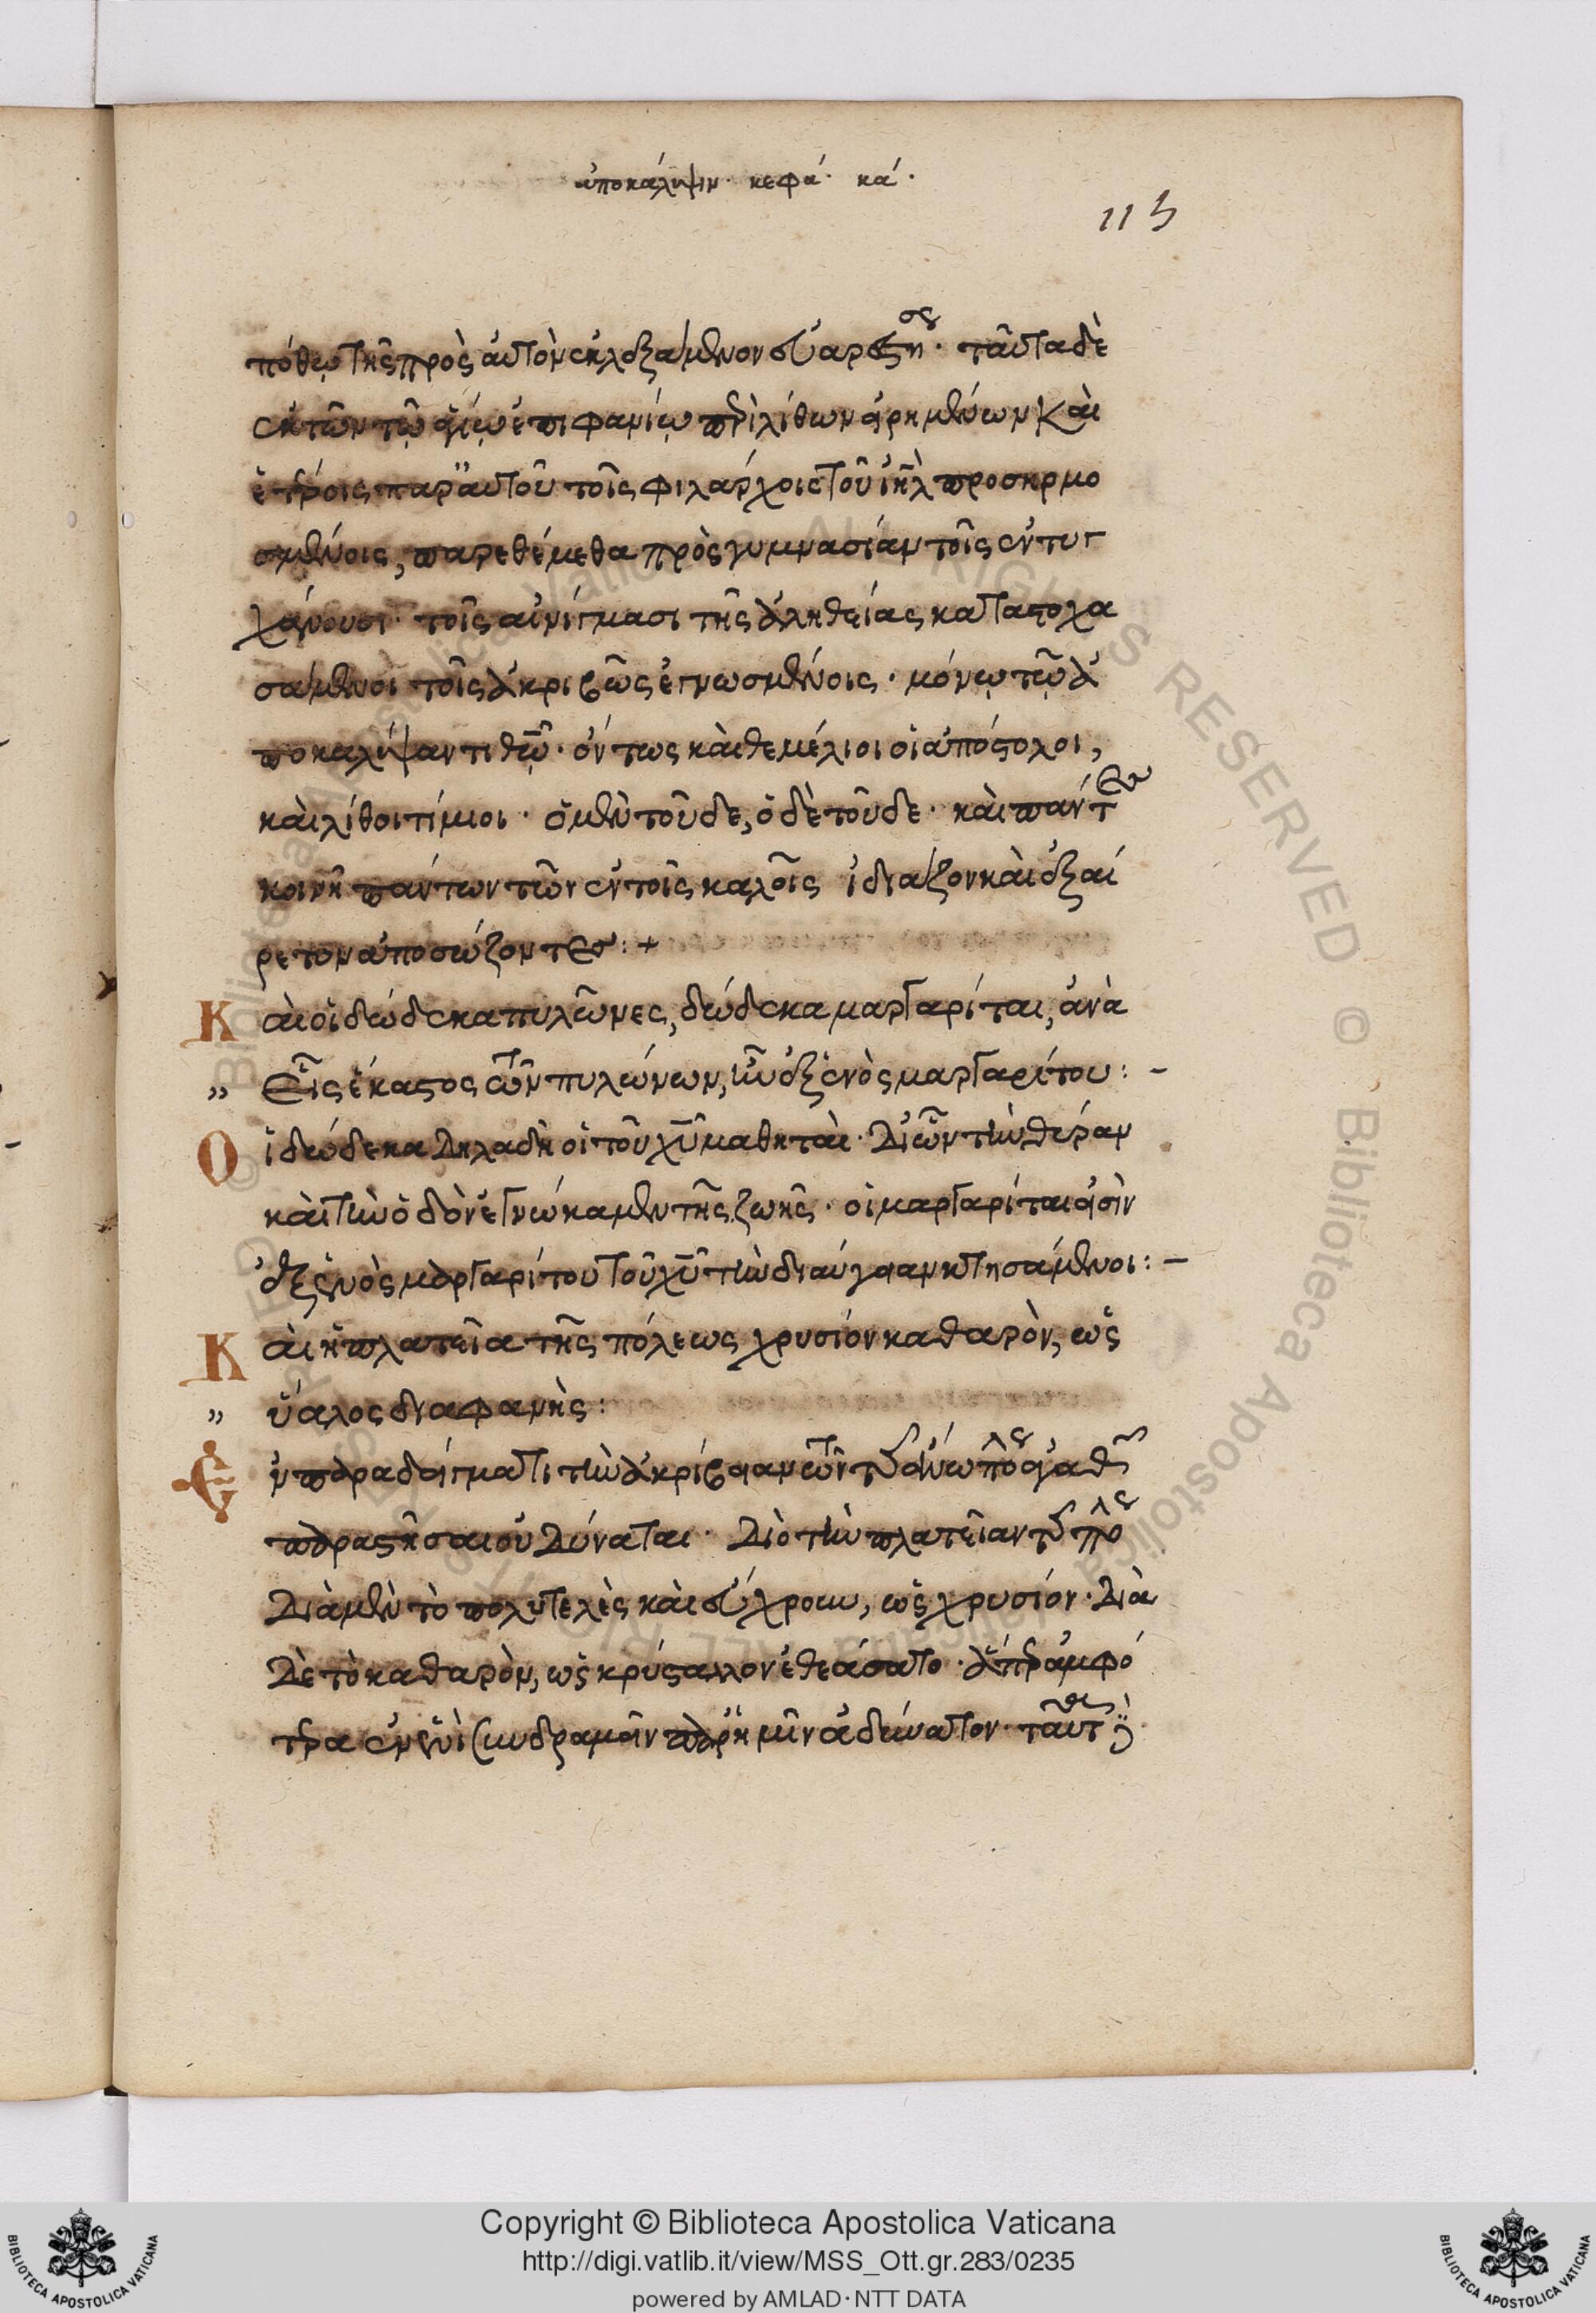 ἀποκάλυψιν· κεφά· κά·
115
πόθῳ τῆς πρὸς αὐτὸν ἐκλαξαμένων εὐαρεστήσους· ταῦτα δὲ
ἐκ τῶν τῷ ἁγίῳ ἐπιφανίῳ περὶ λίθων εἰρημένων καὶ
ἑτέροις παρ' αὐτοῦ τοῖς φιλάρχοις τοῦ ἰηλ προσηρμο
σμένοις, παρεθέμεθα πρὸς γυμνασίαν τοῖς ἐντυγ
χάνουσι· τοῖς αἰνίγμασι τῆς ἀληθείας καταστοχα
σάμενοι τοῖς ἀκριβῶς ἐγνωσμένοις· μόνῳ τῷ ἀ
ποκαλύψαντι θῷ· ὄντως καὶ θεμέλιοι οἱ ἀπόστολοι,
καὶ λίθοι τίμιοι· ὁ μὲν τοῦδε, ὁ δὲ τοῦδε· καὶ πάντες
κοινῇ πάντων τῶν ἐν τοῖς καλοῖς ἰδιάζον καὶ ἐξαί
ρετον ἀποσώζοντες:+
Καὶ οἱ δώδεκα πυλῶνες, δώδεκα μαργαρῖται, ἀνὰ
" εἷς ἕκαστος τῶν πυλώνων, ἦν ἐξ ἑνὸς μαργαρίτου:-
Οἱ δώδεκα δηλαδὴ οἱ τοῦ χῦ μαθηταὶ· δι' ὧν τὴν θύραν
καὶ τὴν ὁδὸν ἐγνώκαμεν τῆς ζωῆς· οἱ μαργαρῖται εἰσὶν
ἐξ ἑνὸς μαργαρίτου τοῦ χῦ τὴν διαύγειαν κτησάμενοι:-
Καὶ ἡ πλατεῖα τῆς πόλεως χρυσίον καθαρὸν, ὡς
" ὕαλος διαφανὴς:
Ἐν παραδείγματι τὴν ἀκρίβειαν τῶν τῆς ἄνω πόλεως ἀγαθῶν
παραστῆσαι οὐ δύναται· διὸ τὴν πλατεῖαν τῆς πόλεως
διὰ μὲν τὸ πολυτελὲς καὶ εὔχρουν, ὡς χρυσίον· διὰ
δὲ τὸ καθαρὸν, ὡς κρύσταλλον ἐθεάσατο· ἅπερ ἀμφό
τερα ἐν ἑνὶ συνδραμεῖν παρ' ἡμῖν ἀδύνατον· ταῦτα
Copyright © Biblioteca Apostolica Vaticana
http://digi.vatlib.it/view/MSS_Ott.gr.283/0235
powered by AMLAD·NTT DATA